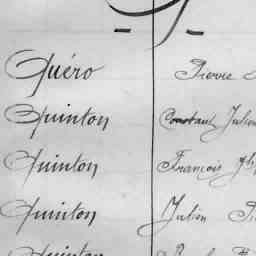 Quéro Pierre
Quinton Constant Julien
Quinton François
Quinton Julien
Quinton